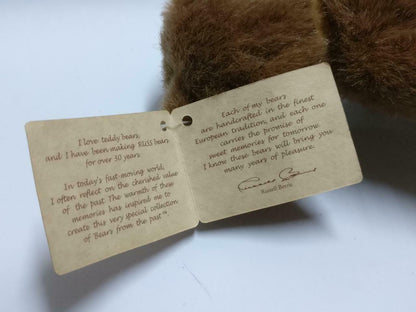 I love teddy bears,
and I have been making RUSS bears
for over 30 years.
In today's fast-moving world,
I often reflect on the cherished value
of the past. The warmth of these
memories has inspired me to
create this very special collection
of "Bears from the past"™.
Each of my bears
are handcrafted in the finest
European tradition, and each one
carries the promise of
sweet memories for tomorrow.
I know these bears will bring you
many years of pleasure.
Russell Berrie